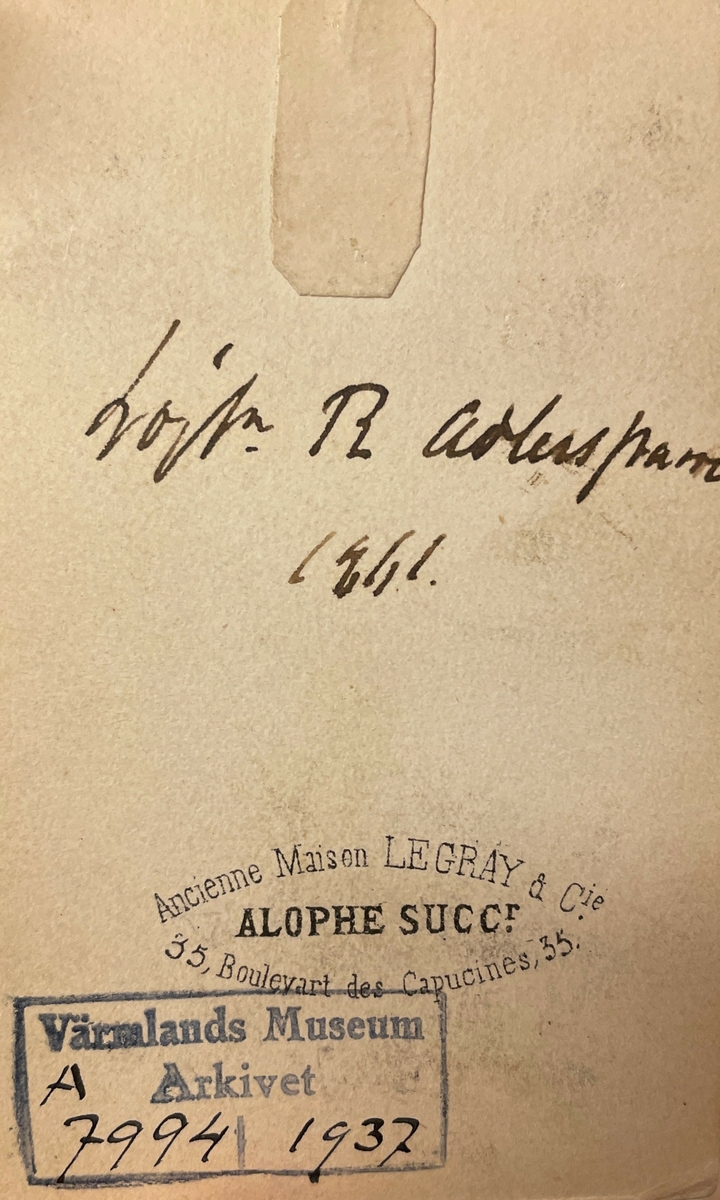 Löjtn R Adlersparre
1861.
Ancienne Maison LEGRAY & Cie
ALOPHE SUCCr
35, Boulevart des Capucines, 35.
Värmlands Museum
A Arkivet
7994 1937